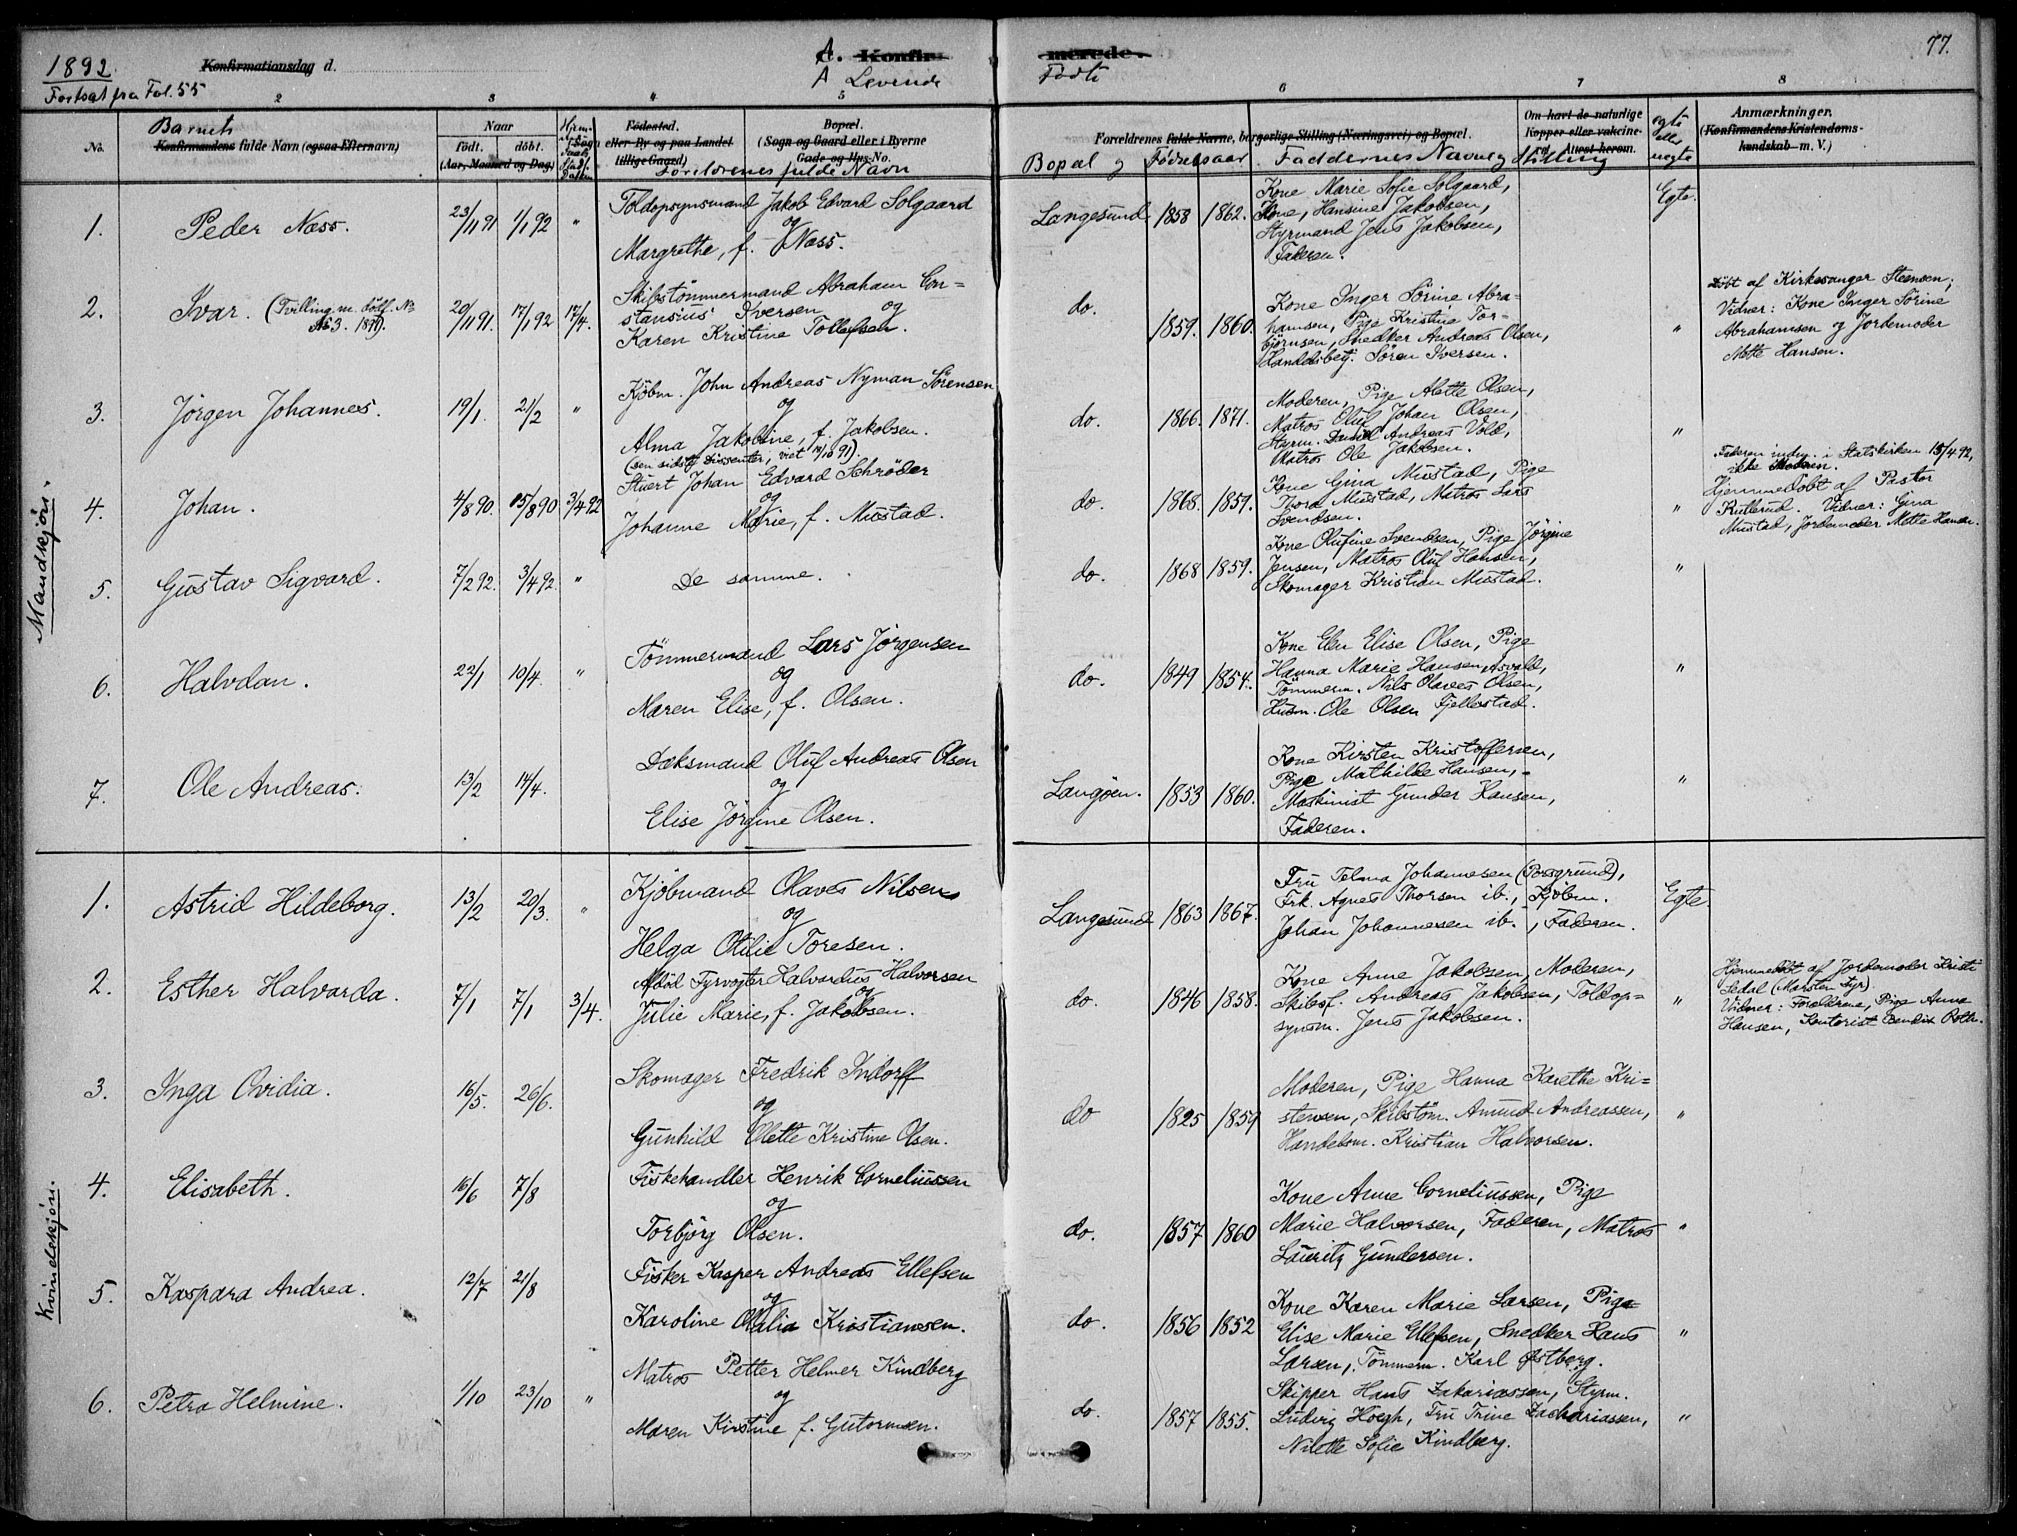 1892. Konfirmationsdag d. A C. Konfir- merede. 77.
Fortsat fra Fol. 55 A Levende Fødte
2 3 4 5 6 7 8
No. Barnets Konfirmandens fulde Navn (ogsaa Efternavn)
Naar født. døbt. (Aar, Maaned og Dag)
Fødested. eller By og paa Landet tillige Gaard)
Bopæl. (Sogn og Gaard eller i Byerne Gade og Hus-No.
Forældrenes fulde Navn
Forældrenes fulde Navne, borgerlige Stilling (Næringsvei) og Bopæl.
Bopæl og Fødselsaar Faddernes Navne og Stilling
Om havt de naturlige Kopper eller vakcineret. Attest herom.
egte eller uegte
Anmærkninger. (Konfirmandens Kristendoms- kundskab m. V.)
Mandskjøn.
1. Peder Næss. 23/11 91 1/1 92 "
Toldopsynsmand Jakob Edvard Solgaard
og
Margrethe, f. Næss.
Langesund 1858 1862.
Kone Marie Sofie Solgaard,
Kone, Hansine Jakobsen,
Styrmand Jens Jakobsen,
Faderen.
Egte.
2. Ivar. (Tvilling m. dødf. No
3. 1891). 20/11 91. 17/1 92 17/4.
Skibstømmermand Abraham Con-
stansius Iversen og
Karen Kristine Tollefsen.
do. 1859. 1860.
Kone Inger Sørine Abra-
hamsen, Pige Kristine Tor-
bjørnsen, Snedker Andreas Olsen,
Handelsbetj. Søren Iversen.
"
Døbt af Kirkesanger Steensen;
Vidner: Kone Inger Sørine
Abrahamsen og Jordemoder
Mette Hansen.
3. Jørgen Johannes. 19/1. 21/2 "
Kjøbm. John Andreas Nyman Sørensen
og
Alma Jakobine, f. Jakobsen.
(den sidste Dissenter, viet 14/10 91).
do. 1866. 1871.
Moderen, Pige Alette Olsen,
Matros Oluf Johan Olsen,
Styrm. Daniel Andreas Vold,
Matros Ole Jakobsen.
"
Faderen indm. i Statskirken 15/4 92,
ikke Moderen.
4. Johan. 4/8 90. 15/8 90 3/4 92
Stuert Johan Edvard Schrøder
og
Johanne Marie, f. Mustad.
do. 1868. 1859.
Kone Gina Mustad, Pige
Thora Mustad, Matros Lars
Svendsen.
"
Hjemmedøbt af Pastor
Rullerud. Vidner: Gina
Mustad, Jordemoder Mette Hansen.
5. Gustav Sigvard. 7/2 92. 3/4 92 "
De samme.
do. 1868 1859.
Kone Olufine Svendsen, Pige Jørgine
Jensen, Matros Oluf Hansen,
Skomager Kristian Mustad.
"
6. Halvdan. 22/1 10/4. "
Tømmermand Lars Jørgensen
og
Maren Elise, f. Olsen.
do. 1849 1854.
Kone Elen Elise Olsen, Pige
Hanna Marie Hansen Åsvald,
Tømmerm. Nils Olaves Olsen,
Husm. Ole Olsen Fjellestad.
"
7. Ole Andreas. 13/2 14/4.
Dæksmand Oluf Andreas Olsen
og
Elise Jørgine Olsen.
Langøen. 1853 1860.
Kone Kirsten Kristoffersen,
Pige Mathilde Hansen,
Maskinist Gunder Hansen,
Faderen.
"
Kvindeskjøn.
1. Astrid Hildeborg. 13/2 20/3. "
Kjøbmand Olaves Nilsen
og
Helga Otilie Toresen.
Langesund 1863 1867.
Fru Telma Johannesen (Porsgrund),
Frk. Agnes Thorsen ib., Kjøbm.
Johan Johannesen ib., Faderen.
Egte.
2. Esther Halvarda. 7/1 7/1 3/4.
Afdød Fyrvogter Halvardus Halvorsen
og
Julie Marie, f. Jakobsen.
do. 1846 1858.
Kone Anne Jakobsen, Moderen,
Skibsf. Andreas Jakobsen, Toldop-
synsm. Jens Jakobsen.
"
Hjemmedøbt af Jordemoder Kristi
Sedal (Marsten Fyr).
Vidner: Forældrene, Pige Anna
Hansen, Kontorist Bendix Roth.
3. Inga Ovidia. 16/5. 26/6.
Skomager Fredrik Indorff
og
Gunhild Olette Kristine Olsen.
do 1825 1859
Moderen, Pige Hanna Karethe Kri-
stensen, Skibstøm. Amund Andreassen,
Handelsm. Kristian Halvorsen.
"
4. Elisabeth. 16/6 7/8
Fiskehandler Henrik Corneliussen
og
Torbjørg Olsen.
do. 1857 1860
Kone Anne Corneliussen, Pige
Marie Halvorsen, Faderen, Matros
Lauritz Gundersen.
"
5. Kaspara Andrea. 12/7 21/8
Fisker Kasper Andreas Ellefsen
og
Karoline Otalia Kristiansen.
do. 1856 1852
Kone Karen Marie Larsen, Pige
Elise Marie Ellefsen, Snedker Hans
Larsen, Tømmerm. Karl Østberg.
"
6. Petra Helmine. 1/10 23/10 "
Matros Petter Helmer Kindberg
og
Maren Kirstine f. Gutormsen.
do. 1857 1855.
Skipper Hans Zakariassen, Styrm.
Ludvig Høegh, Fru Trine Zachariassen,
Nilette Sofie Kindberg.
"